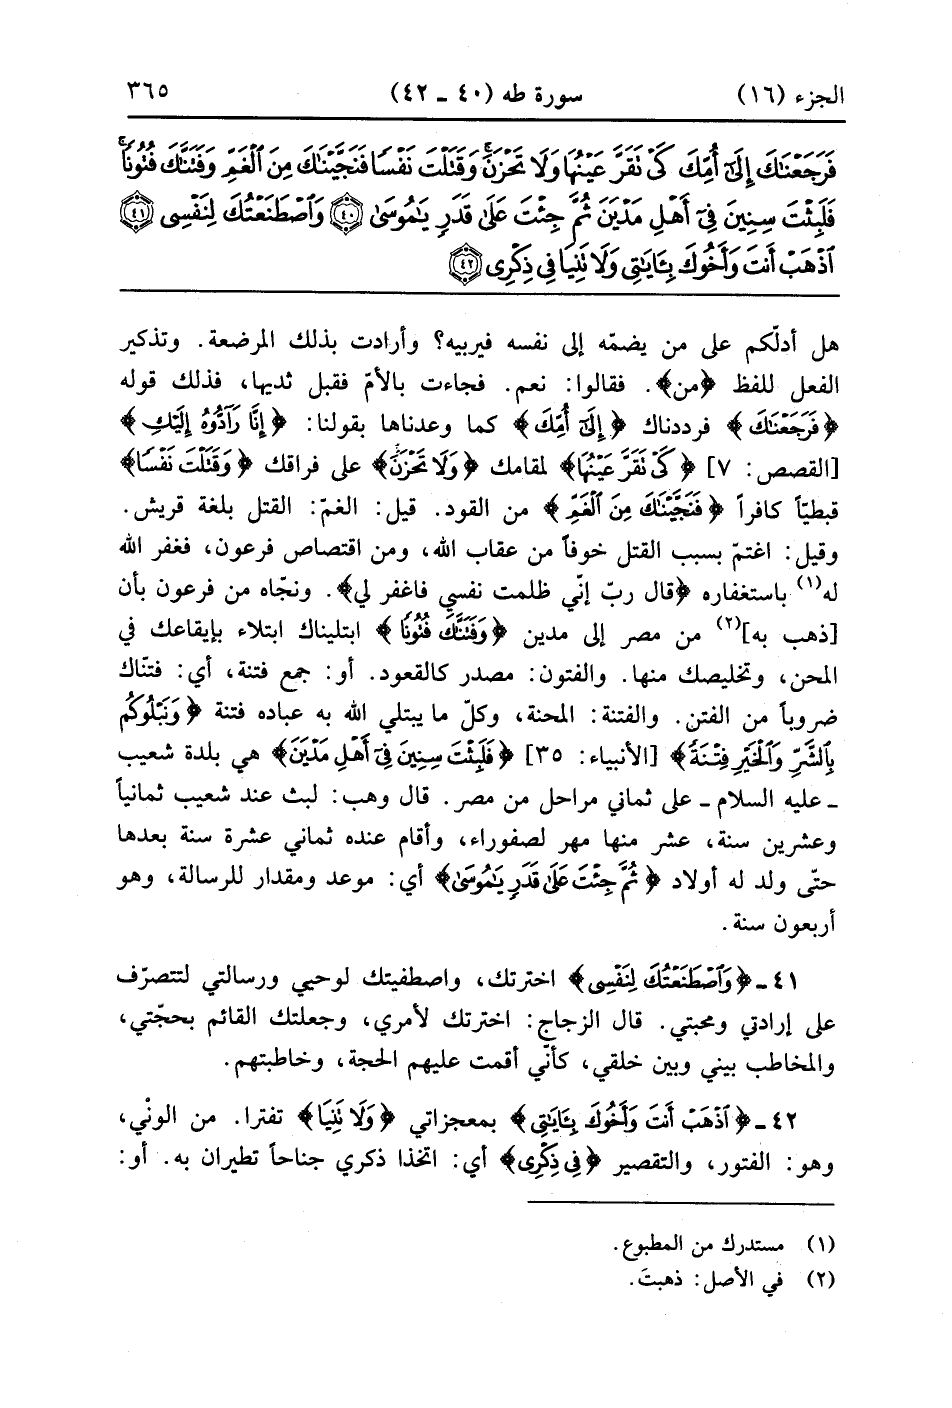 الجزء (١٦) سورة طه (٤٠ ـ ٤٢) ٣٦٥
فَرَجَعْنَٰكَ إِلَىٰٓ أُمِّكَ كَىْ تَقَرَّ عَيْنُهَا وَلَا تَحْزَنَ ۚ وَقَتَلْتَ نَفْسًا فَنَجَّيْنَٰكَ مِنَ ٱلْغَمِّ وَفَتَنَّٰكَ فُتُونًا ۚ
فَلَبِثْتَ سِنِينَ فِىٓ أَهْلِ مَدْيَنَ ثُمَّ جِئْتَ عَلَىٰ قَدَرٍ يَٰمُوسَىٰ ﴿٤٠﴾ وَٱصْطَنَعْتُكَ لِنَفْسِى ﴿٤١﴾
ٱذْهَبْ أَنتَ وَأَخُوكَ بِـَٔايَٰتِى وَلَا تَنِيَا فِى ذِكْرِى ﴿٤٢﴾
هل أدلّكم على من يضمّه إلى نفسه فيربيه؟ وأرادت بذلك المرضعة. وتذكير
الفعل للفظ ﴿من﴾. فقالوا: نعم. فجاءت بالأمّ فقبل ثديها، فذلك قوله
﴿فَرَجَعْنَٰكَ﴾ فرددناك ﴿إِلَىٰٓ أُمِّكَ﴾ كما وعدناها بقولنا: ﴿إِنَّا رَآدُّوهُ إِلَيْكِ﴾
[القصص: ٧] ﴿كَىْ تَقَرَّ عَيْنُهَا﴾ لمقامك ﴿وَلَا تَحْزَنَ﴾ على فراقك ﴿وَقَتَلْتَ نَفْسًا﴾
قبطيّاً كافراً ﴿فَنَجَّيْنَٰكَ مِنَ ٱلْغَمِّ﴾ من القود. قيل: الغمّ: القتل بلغة قريش.
وقيل: اغتمّ بسبب القتل خوفاً من عقاب الله، ومن اقتصاص فرعون، فغفر الله
له(١) باستغفاره ﴿قال ربّ إنّي ظلمت نفسي فاغفر لي﴾. ونجّاه من فرعون بأن
[ذهب به](٢) من مصر إلى مدين ﴿وَفَتَنَّٰكَ فُتُونًا﴾ ابتليناك ابتلاء بإيقاعك في
المحن، وتخليصك منها. والفتون: مصدر كالقعود. أو: جمع فتنة، أي: فتنّاك
ضروباً من الفتن. والفتنة: المحنة، وكلّ ما يبتلي الله به عباده فتنة ﴿وَنَبْلُوكُم
بِٱلشَّرِّ وَٱلْخَيْرِ فِتْنَةً﴾ [الأنبياء: ٣٥] ﴿فَلَبِثْتَ سِنِينَ فِىٓ أَهْلِ مَدْيَنَ﴾ هي بلدة شعيب
ـ عليه السلام ـ على ثماني مراحل من مصر. قال وهب: لبث عند شعيب ثمانياً
وعشرين سنة، عشر منها مهر لصفوراء، وأقام عنده ثماني عشرة سنة بعدها
حتّى ولد له أولاد ﴿ثُمَّ جِئْتَ عَلَىٰ قَدَرٍ يَٰمُوسَىٰ﴾ أي: موعد ومقدار للرسالة، وهو
أربعون سنة.
٤١ ـ ﴿وَٱصْطَنَعْتُكَ لِنَفْسِى﴾ اخترتك، واصطفيتك لوحيي ورسالتي لتتصرّف
على إرادتي ومحبتي. قال الزجاج: اخترتك لأمري، وجعلتك القائم بحجّتي،
والمخاطب بيني وبين خلقي، كأنّي أقمت عليهم الحجة، وخاطبتهم.
٤٢ ـ ﴿ٱذْهَبْ أَنتَ وَأَخُوكَ بِـَٔايَٰتِى﴾ بمعجزاتي ﴿وَلَا تَنِيَا﴾ تفترا. من الونْي،
وهو: الفتور، والتقصير ﴿فِى ذِكْرِى﴾ أي: اتخذا ذكري جناحاً تطيران به. أو:
(١) مستدرك من المطبوع.
(٢) في الأصل: ذهبتَ.